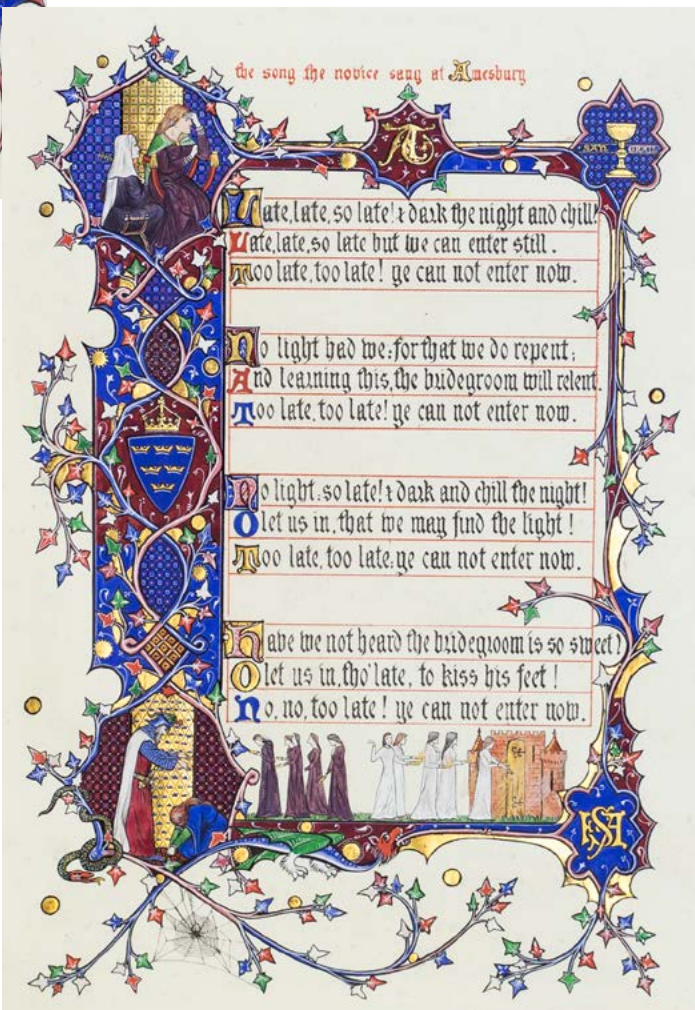 the song the novice sang at Amesbury
AT
SAN GRAIL
Late, late, so late! & dark the night and chill!
Late, late, so late but we can enter still.
Too late, too late! ye can not enter now.
No light had we: for that we do repent;
And learning this, the bridegroom will relent.
Too late, too late! ye can not enter now.
No light: so late! & dark and chill the night!
O let us in, that we may find the light!
Too late, too late: ye can not enter now.
Have we not heard the bridegroom is so sweet?
O let us in, tho' late, to kiss his feet!
No, no, too late! ye can not enter now.